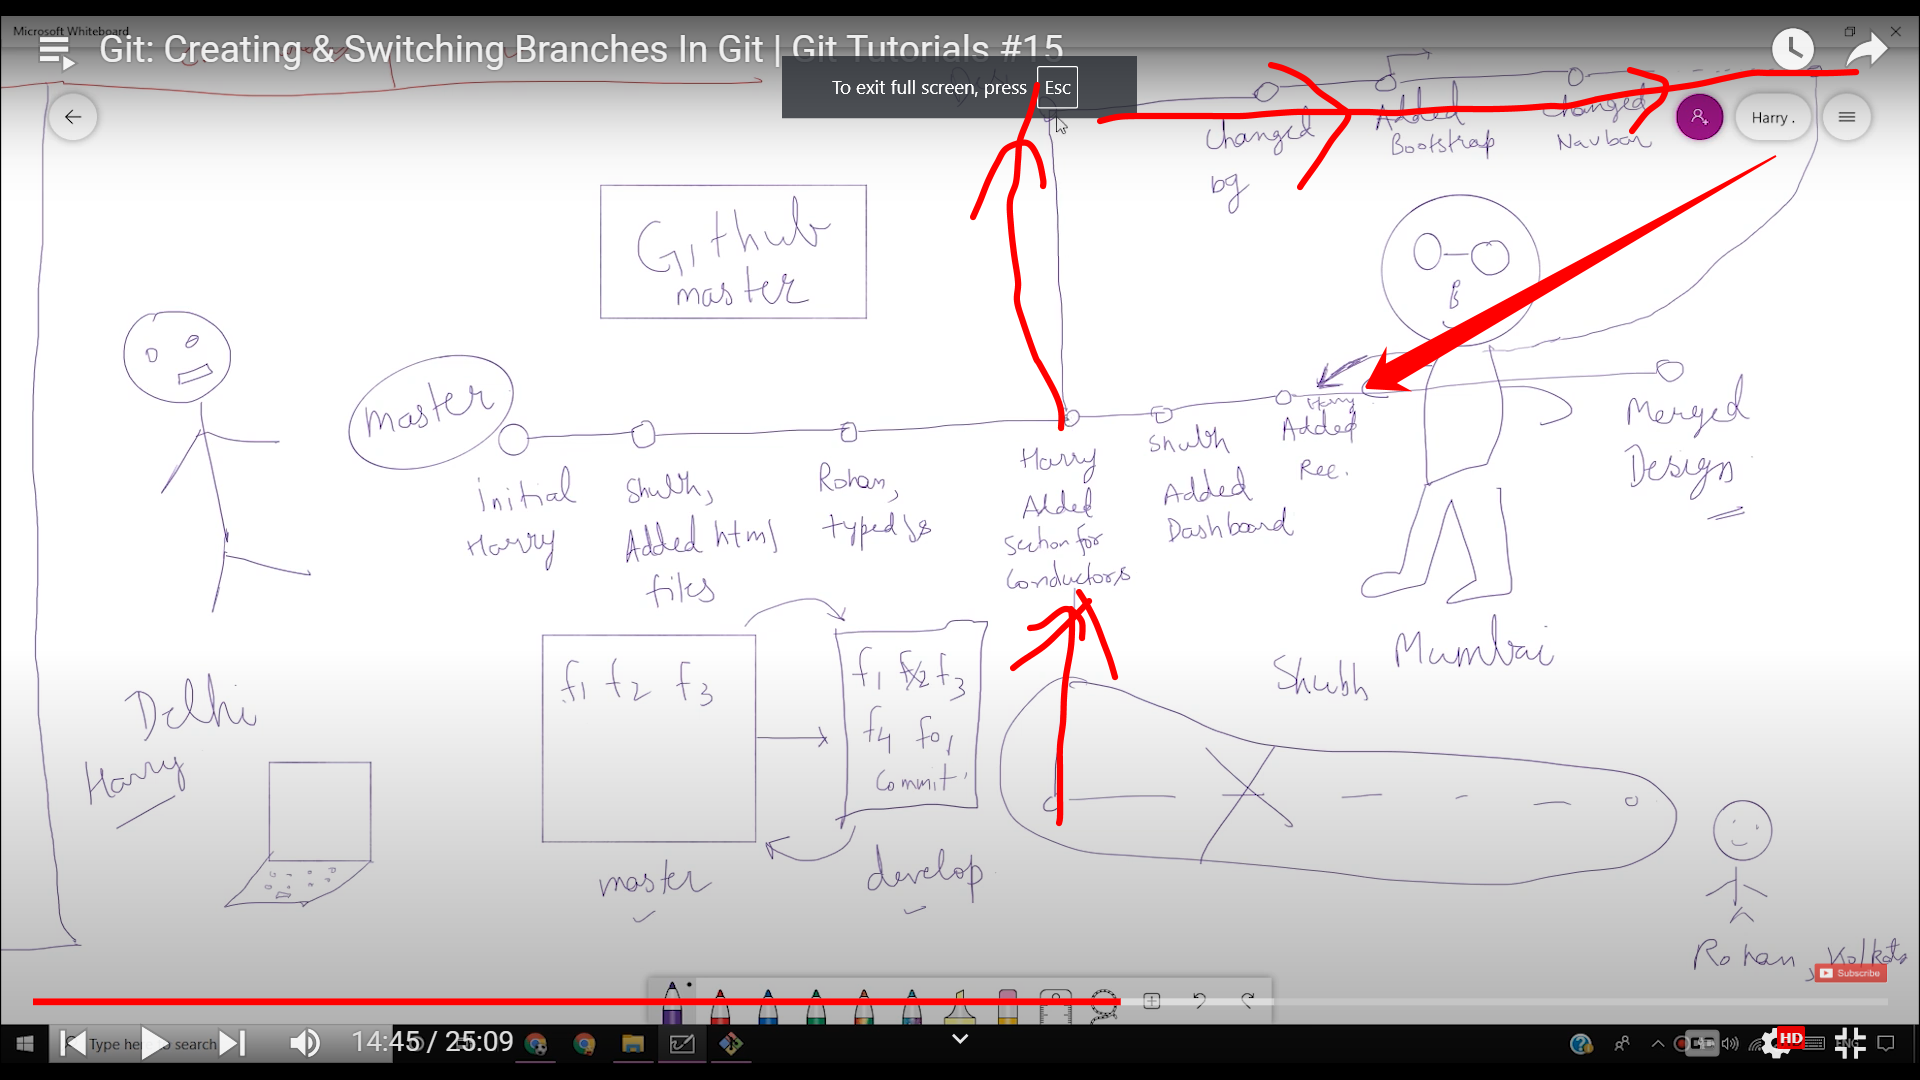 Microsoft Whiteboard
Git: Creating & Switching Branches In Git | Git Tutorials #15
To exit full screen, press Esc
Harry .
Changed
bg
Added
Bootstrap
Changed
Navbar
Github
master
master
initial
Harry
Shubh,
Added html
files
Rohan,
typedjs
Harry
Added
Section for
Conductors
Shubh
Added
Dashboard
Harry
Added
Rec.
Merged
Design
Delhi
Harry
f1 f2 f3
master
f1 f2 f3
f4 fo,
Commit
develop
Shubh
Mumbai
Rohan, Kolkata
Subscribe
14:45 / 25:09
Type here to search
HD
ENG